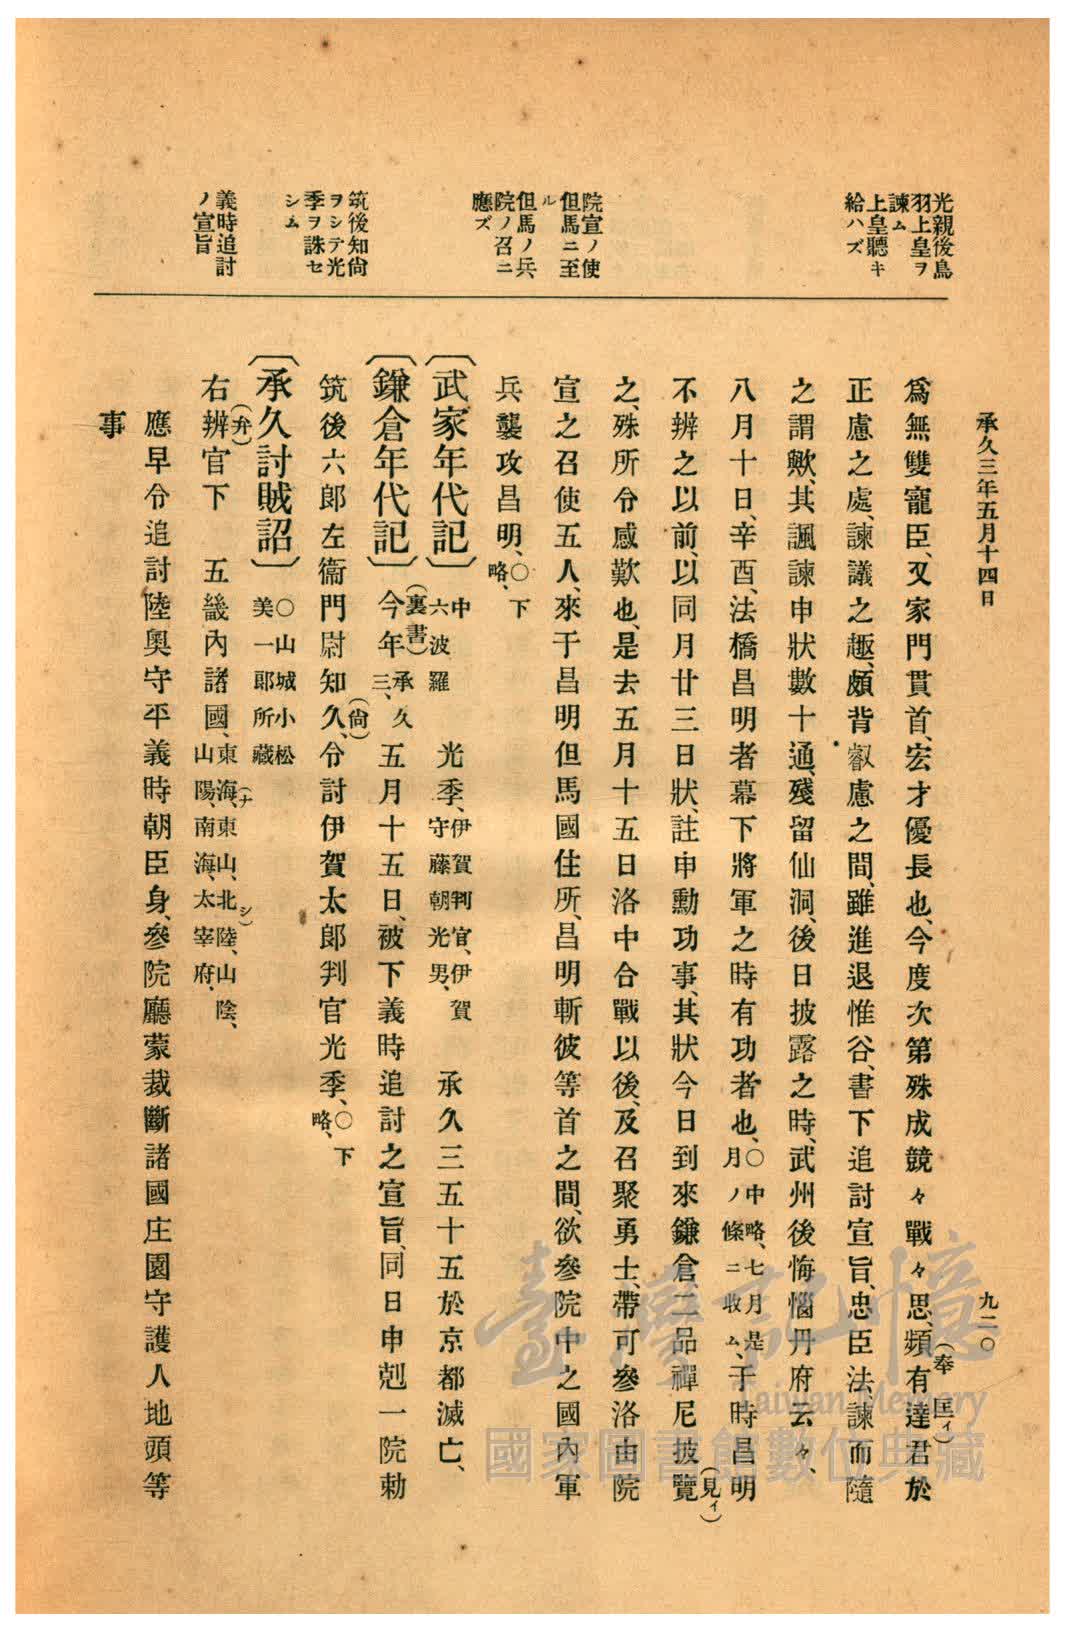 承久三年五月十四日
九二〇
光親後鳥
羽上皇ヲ
諫ム
上皇聽キ
給ハズ
院宣ノ使
但馬ニ至
ル
但馬ノ兵、
院ノ召ニ
應ズ
筑後知尙
ヲシテ光
季ヲ誅セ
シム
義時追討
ノ宣旨
爲無雙寵臣、又家門貫首、宏才優長也、今度次第殊成兢々戰々思、頻有達君於
(奉 匡イ)
正慮之處、諫議之趣、頗背叡慮之間、雖進退惟谷、書下追討宣旨、忠臣法、諫而隨
之謂歟、其諷諫申狀數十通、殘留仙洞、後日披露之時、武州後悔惱丹府云々、
八月十日、辛酉、法橋昌明者幕下將軍之時有功者也、〇中略、七月是月ノ條ニ收ム、于時昌明
不辨之以前、以同月廿三日狀、註申勳功事、其狀今日到來鎌倉、二品禪尼披覽
(見イ)
之、殊所令感歎也、是去五月十五日洛中合戰以後、及召聚勇士、帶可參洛由院
宣之召使五人、來于昌明但馬國住所、昌明斬彼等首之間、欲參院中之國內軍
兵襲攻昌明、〇下略、
〔武家年代記〕 中 六波羅 光季、伊賀判官、伊賀守藤朝光男、 承久三五十五於京都滅亡、
〔鎌倉年代記〕 (裏書) 今年承久三、五月十五日、被下義時追討之宣旨、同日申剋一院勅
筑後六郎左衞門尉知久、(尙)令討伊賀太郎判官光季、〇下略、
〔承久討賊詔〕 〇山城小松美一郎所藏
右辨(弁)官下 五畿內諸國、東海、東山、北陸、山陰、山陽、南海、太宰府、
(ナシ)
應早令追討陸奧守平義時朝臣身、參院廳蒙裁斷諸國庄園守護人地頭等
事
臺灣記憶
Taiwan Memory
國家圖書館數位典藏